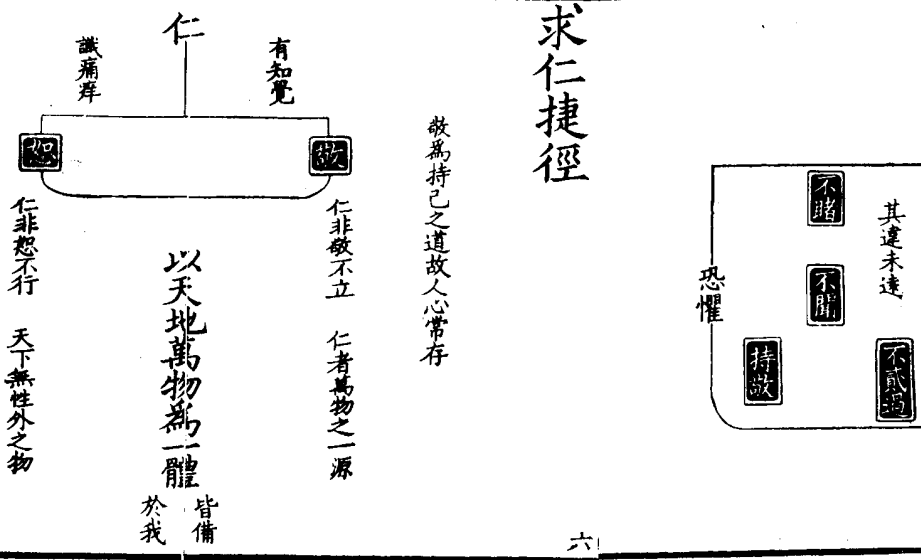 其違未遠
不睹
不聞
不貳過
持敬
恐懼
求仁捷徑
六
敬爲持己之道故人心常存
仁
有知覺
識痛痒
敬
恕
仁非敬不立
仁者萬物之一源
以天地萬物爲一體
皆備
於我
仁非恕不行
天下無性外之物